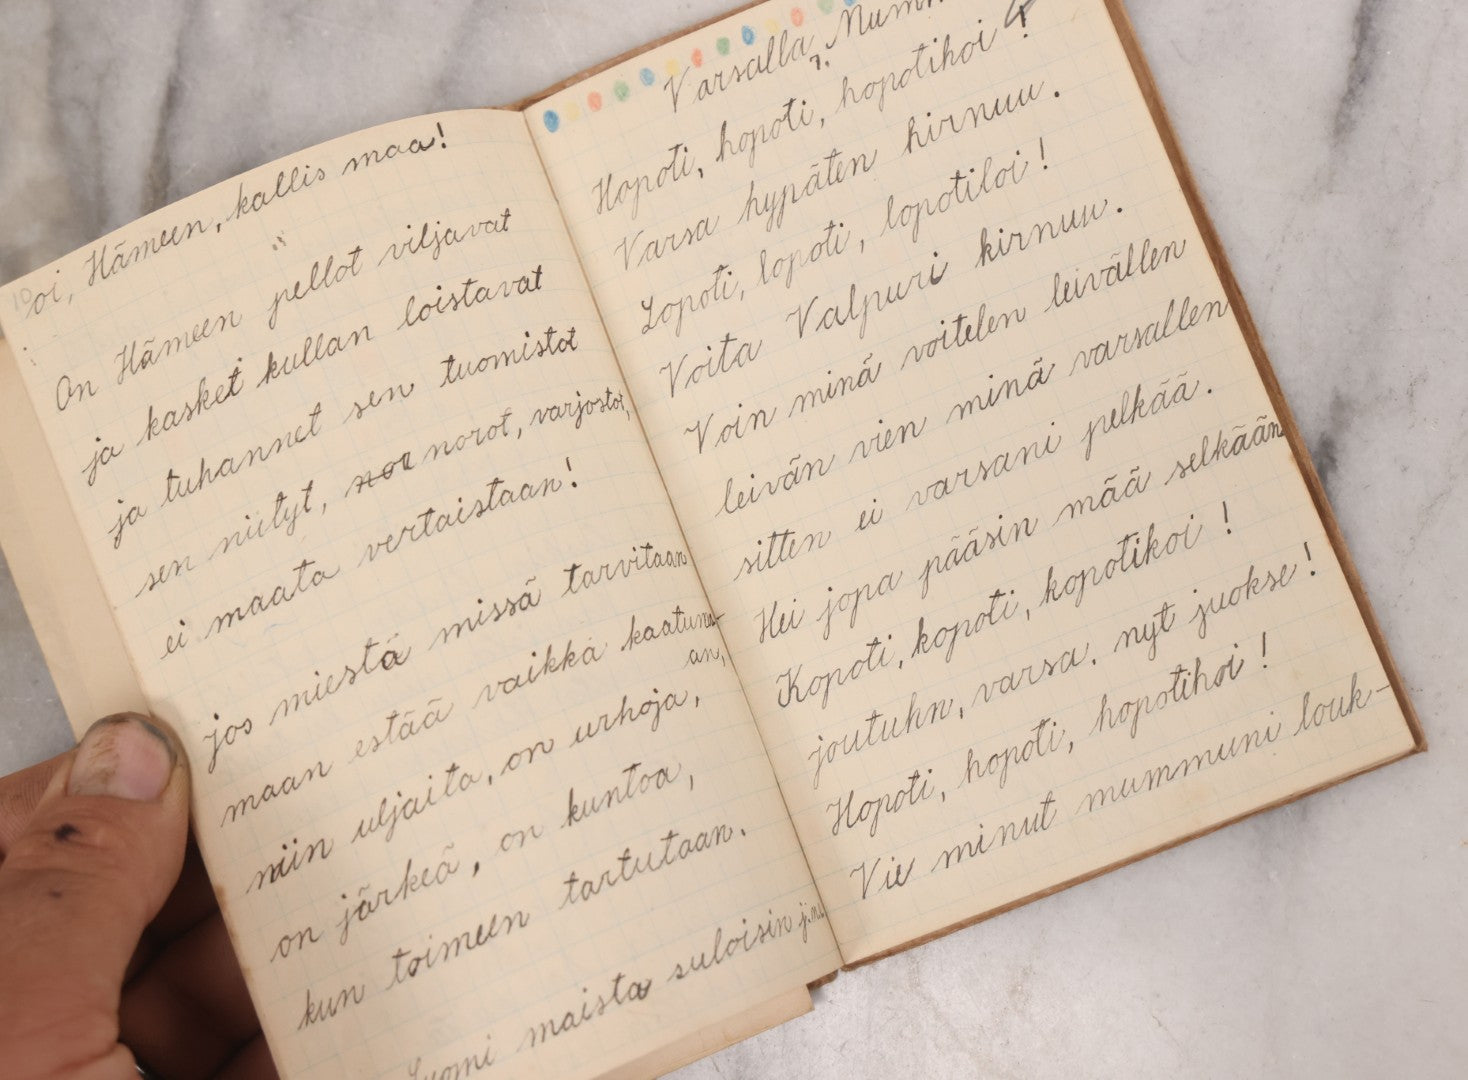 10
oi, Hämeen, kallis maa!
On Hämeen pellot viljavat
ja kasket kullan loistavat
ja tuhannet sen tuomistot
sen niityt, nor norot, varjostot,
ei maata vertaistaan!
jos miestä missä tarvitaan
maan estää vaikka kaatuma-
an,
niin uljaita, on urhoja,
on järkeä, on kuntoa,
kun toimeen tartutaan.
Suomi maista suloisin j.n.
Varsalla Mumm
Hopoti, hopoti, hopotihoi!
Varsa hypäten hirnuu.
Lopoti, lopoti, lopotiloi!
Voita Valpuri kirnuu.
Voin minä voitelen leivällen
leivän vien minä varsallen
sitten ei varsani pelkää.
Hei jopa pääsin mää selkään
Kopoti, kopoti, kopotikoi!
joutuhn, varsa. nyt juokse!
Hopoti, hopoti, hopotihoi!
Vie minut mummuni louk-